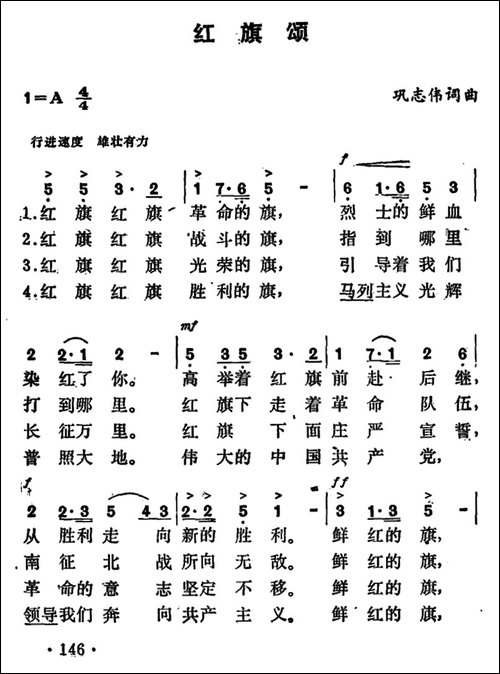 红旗颂
1=A 4/4
巩志伟词曲
行进速度 雄壮有力
f
5 5 3·2 | 1 7·6 5 - | 6 1·6 5 3
1.红旗红旗 革命的旗， 烈士的鲜血
2.红旗红旗 战斗的旗， 指到哪里
3.红旗红旗 光荣的旗， 引导着我们
4.红旗红旗 胜利的旗， 马列主义光辉
mf
2 2·1 2 - | 5 3 5 3·2 | 1 7·1 2 6
染红了你。 高举着红旗前赴后继，
打到哪里。 红旗下走着革命队伍，
长征万里。 红旗下面庄严宣誓，
普照大地。 伟大的中国共产党，
f ff
2 2·3 5 4 3 | 2·2 5 1 - | 3 1·3 5 -
从胜利走向新的胜利。 鲜红的旗，
南征北战所向无敌。 鲜红的旗，
革命的意志坚定不移。 鲜红的旗，
领导我们奔向共产主义。 鲜红的旗，
·146·